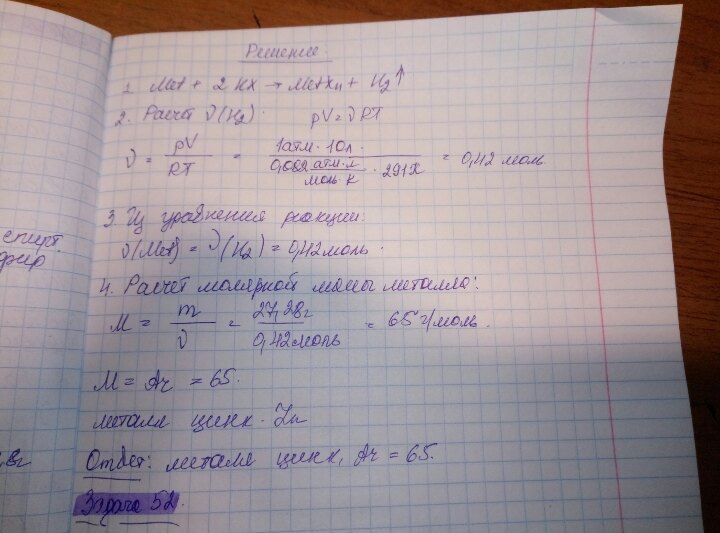 Решение.
1. Met + 2HX → MetXn + H2↑
2. Расчёт ν(H2). pV = νRT
ν = pV/RT = 1атм · 10л / 0,082 атм·л/моль·К · 291К = 0,42 моль
3. Из уравнения реакции:
ν(Met) = ν(H2) = 0,42 моль.
4. Расчёт молярной массы металла:
M = m/ν = 27,28г / 0,42моль = 65 г/моль.
M = Ar = 65.
металл цинк. Zn
Ответ: металл цинк, Ar = 65.
Задача 52.
спирт